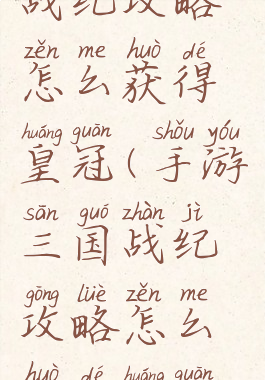 战纪攻略
zěn me huò dé
怎么获得
huáng guān shǒu yóu
皇冠（手游
sān guó zhàn jì
三国战纪
gōng lüè zěn me
攻略怎么
huò dé huáng guān